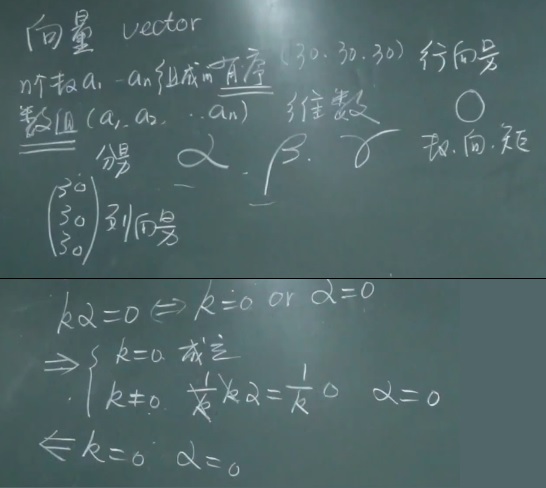 向量 vector
n个数a₁…aₙ组成的有序 (30.30.30) 行向量
数组 (a₁, a₂, …aₙ) 维数 0
分量 α . β . γ 数.向.矩
(30
30
30) 列向量
kα=0 ⇔ k=0 or α=0
⇒ { k=0 成立
k≠0 1/k kα = 1/k 0 α=0
⇐ k=0 α=0